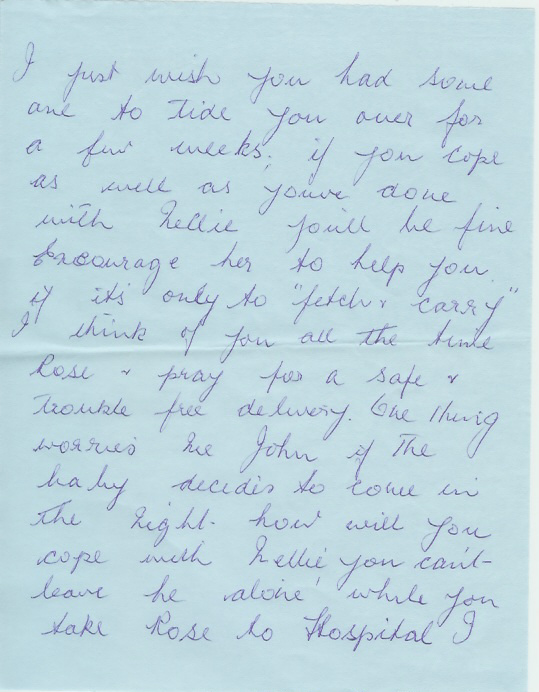 I just wish you had some
one to tide you over for
a few weeks, if you cope
as well as youve done
with Nellie you'll be fine
Encourage her to help you.
if its only to "fetch & carry"
I think of you all the time
Rose & pray for a safe &
trouble free delivery. One thing
worries me John if the
baby decides to come in
the night. how will you
cope with Nellie, you can't
leave he alone, while you
take Rose to Hospital I